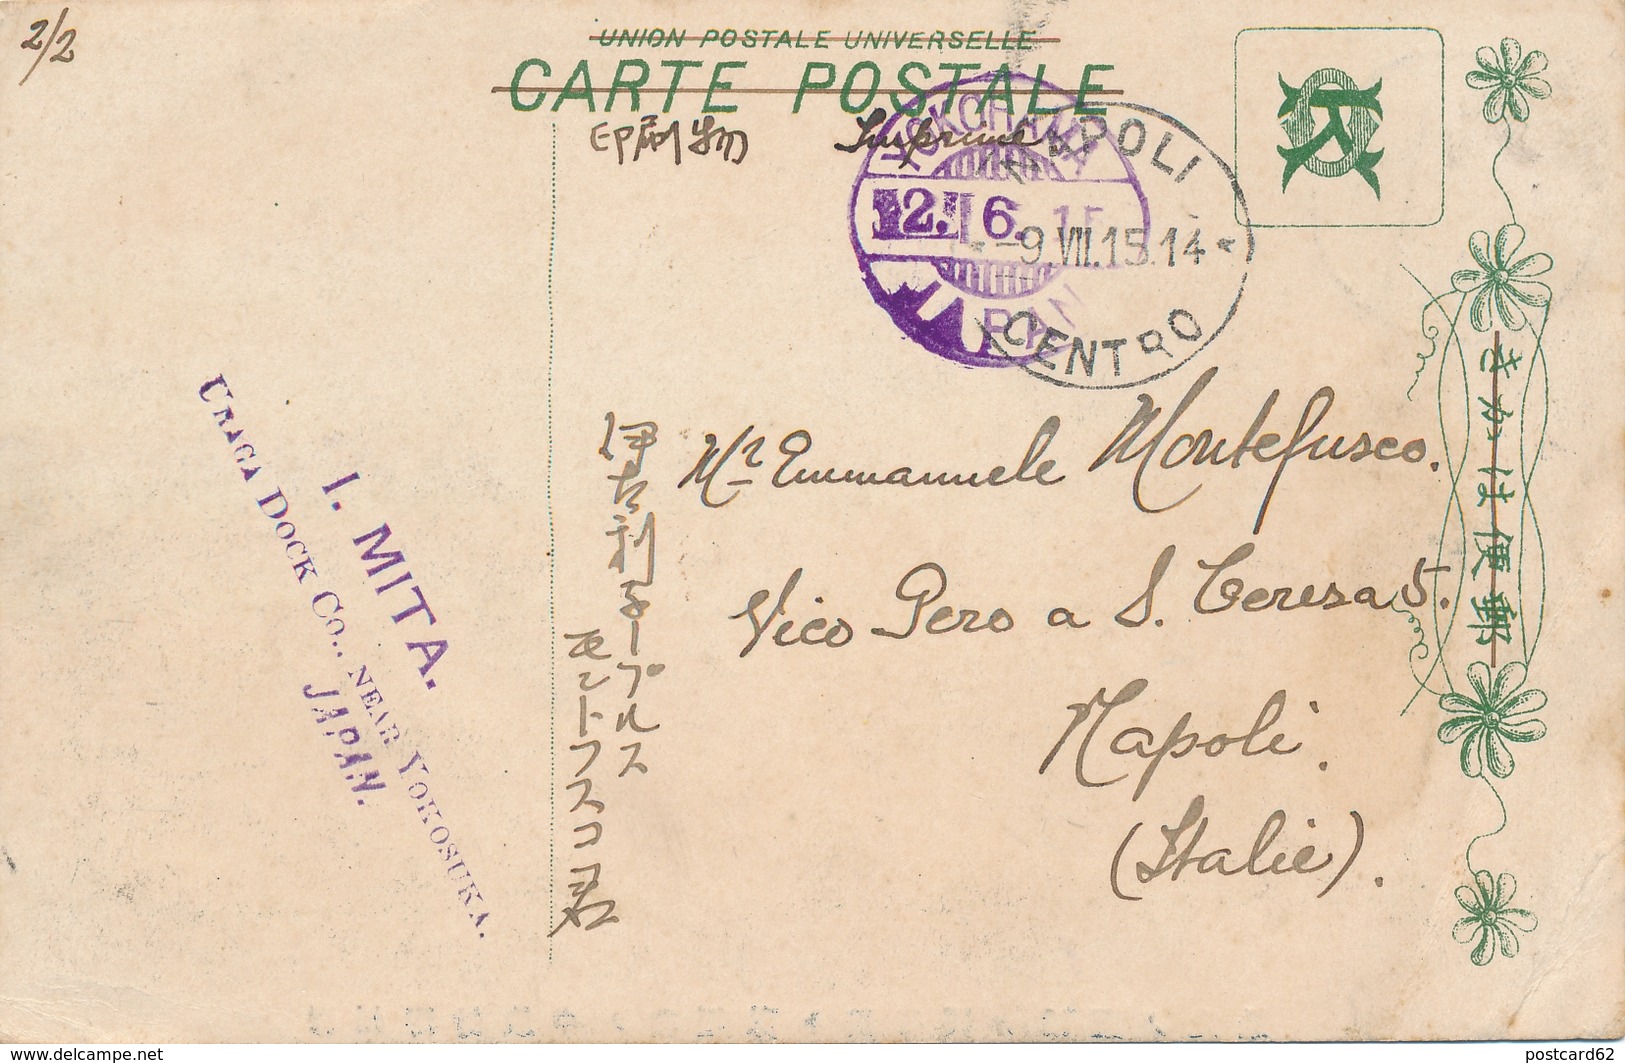 2/2
UNION POSTALE UNIVERSELLE
CARTE POSTALE
印刷物
Imprimé
YOKOHAMA
12. 6. 15
JAPAN
NAPOLI
-9.VII.15.14
CENTRO
きかは便郵
Mr Emmanuele Montefusco.
Vico Pero a S. Teresa 5.
Napoli.
(Italie).
伊太利ネープルス
モントフスコ君
I. MITA.
URAGA DOCK CO., NEAR YOKOSUKA.
JAPAN.
www.delcampe.net
postcard62